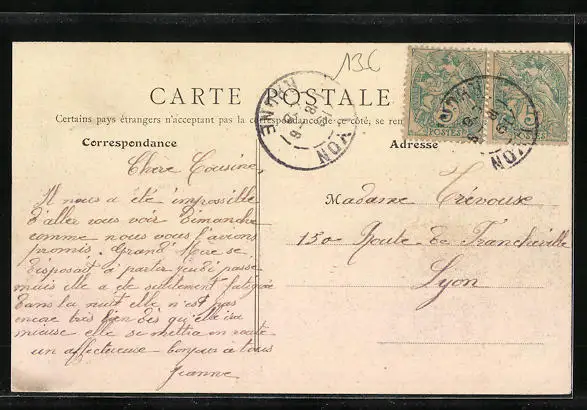 136
CARTE POSTALE
Certains pays étrangers n'acceptent pas la correspondance de ce côté, se ren
Correspondance
Adresse
LYON
RHONE
LYON
RHONE
POSTES
POSTES
Chère Cousine,
Il nous a été impossible
d'aller vous voir Dimanche
comme nous vous l'avions
promis. Grand' Mère se
disposait à partir jeudi passé
mais elle a été tellement fatiguée
dans la nuit elle n'est pas
encore très bien dès qu'elle ira
mieux elle se mettra en route
un affectueuse bonjour à tous
Jeanne
Madame Trévouse
150 Route de Francheville
Lyon